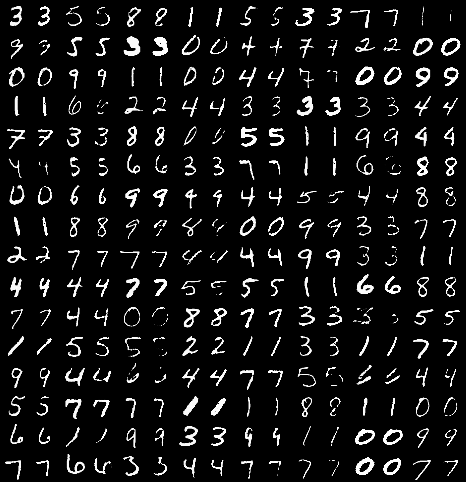 3 3 5 5 8 8 1 1 5 5 3 3 7 7 1 1
9 9 5 5 3 3 0 0 4 4 7 7 2 2 0 0
0 0 9 9 1 1 0 0 4 4 7 7 0 0 9 9
1 1 6 6 2 2 4 4 3 3 3 3 3 3 4 4
7 7 3 3 8 8 0 0 5 5 1 1 9 9 4 4
4 4 5 5 6 6 3 3 7 7 1 1 6 6 8 8
0 0 6 6 9 9 9 9 4 4 5 5 4 4 8 8
1 1 8 8 9 9 8 8 0 0 9 9 3 3 7 7
2 2 7 7 7 7 4 4 4 4 9 9 3 3 1 1
4 4 4 4 7 7 5 5 5 5 1 1 6 6 8 8
7 7 4 4 0 0 8 8 7 7 3 3 5 5
1 1 5 5 5 5 2 2 1 1 3 3 1 1 7 7
9 9 4 4 6 6 4 4 7 7 5 5 4 4
5 5 7 7 7 7 1 1 1 1 8 8 1 1 0 0
6 6 1 1 9 9 3 3 9 9 1 1 0 0 9 9
7 7 6 6 3 3 4 4 7 7 7 7 0 0 7 7